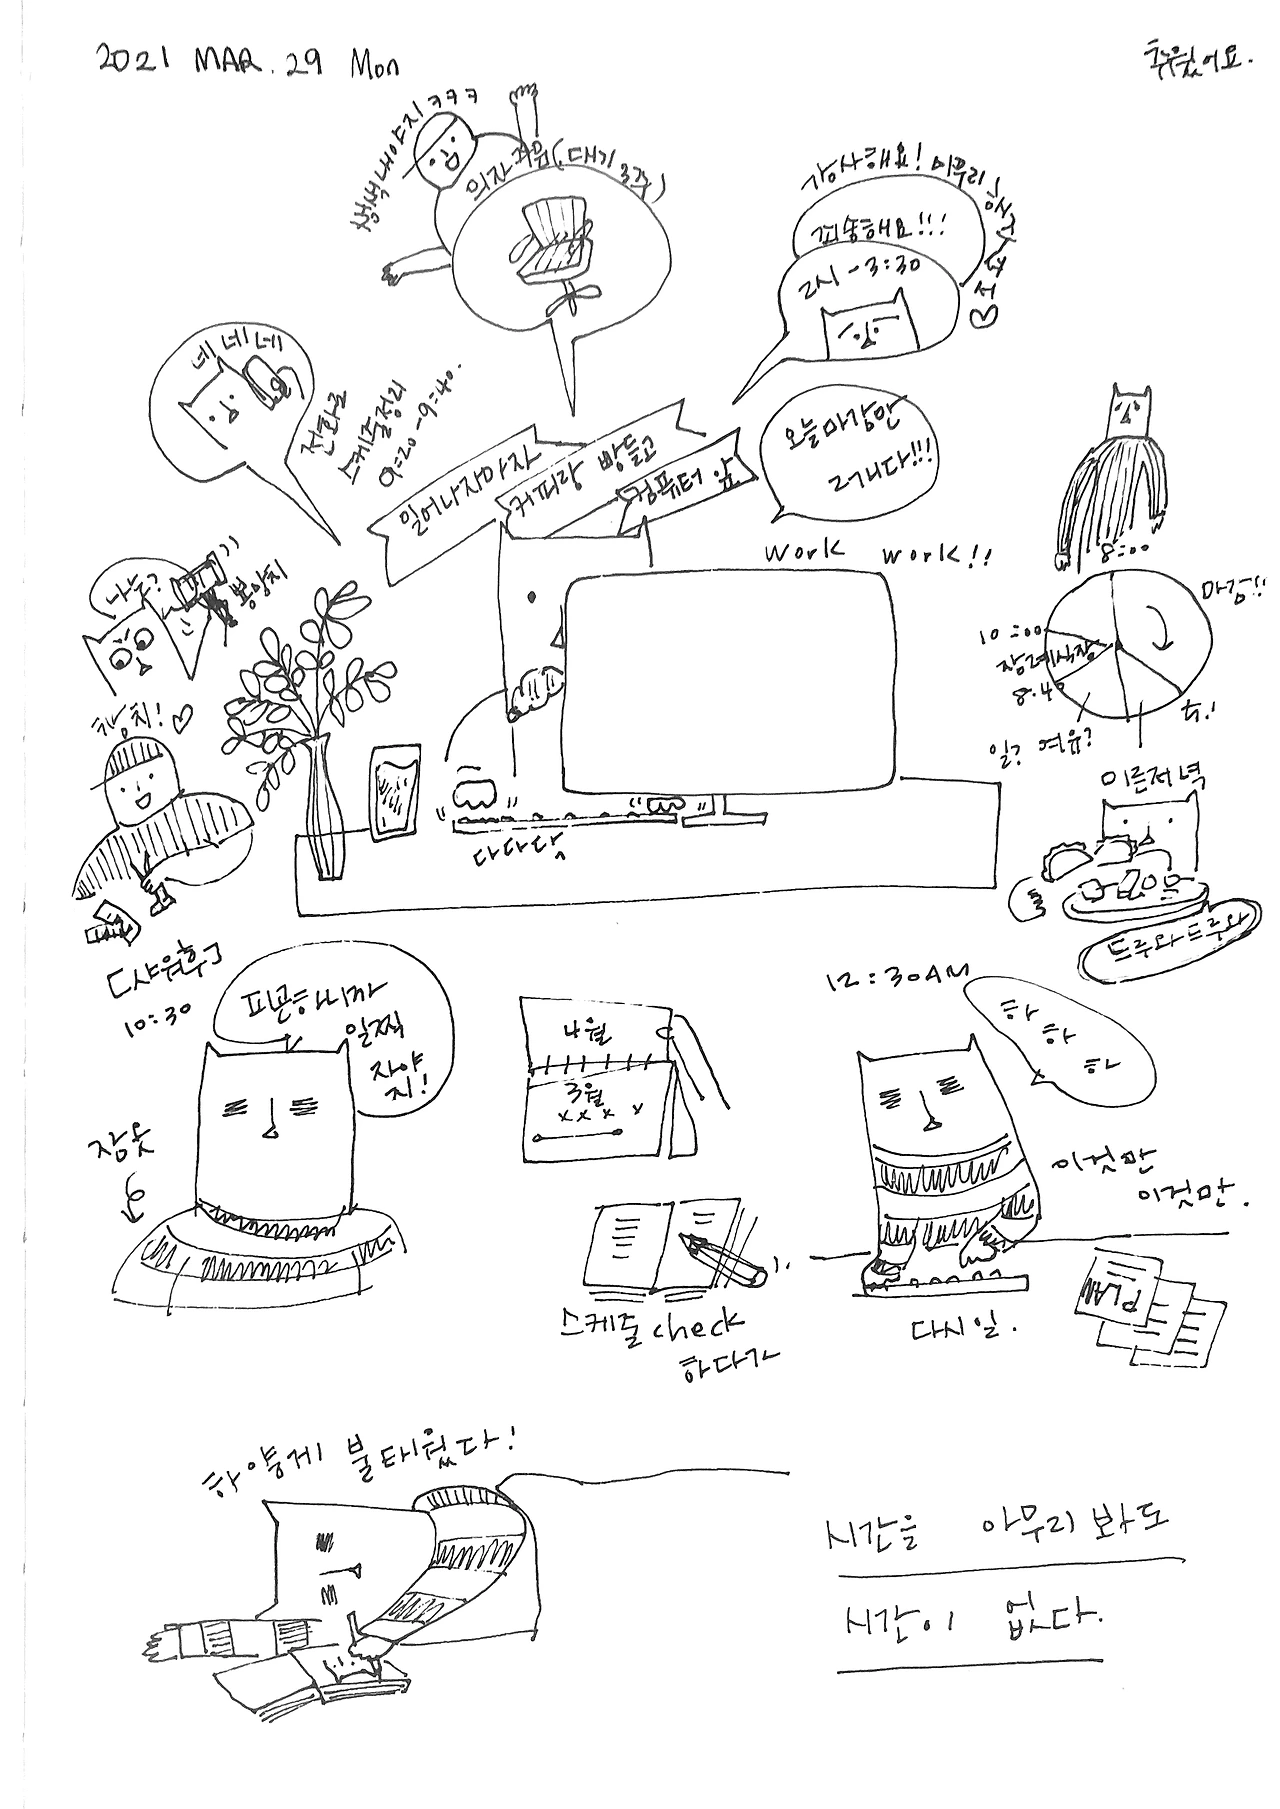 2021 MAR. 29 Mon
추웠어요.
생색내야지! ㅋㅋㅋ
의자 (대기 3주)
감사해요! 마무리
죄송해요!!!
2시 - 3:30
네네네
전화로
스케줄정리
9:20 - 9:40.
일어나자마자
커피랑 빵들고
컴퓨터 앞
오늘마감만
2개다!!!
work work!!
나눈?
뽕망치
참치! ♡
다다닥
8:00
마감!!
10:00
장례식장
8:40
일? 여유?
이른저녁
드루와드루와
[샤워후]
10:30
피곤하니까
일찍
자야
지!
잠옷
4월
3월
x x x x
스케줄 check
하다가
12:30AM
하
하
하
이것만
이것만.
다시일.
PLAN
하얗게 불태웠다!
시간을 아무리 봐도
시간이 없다.